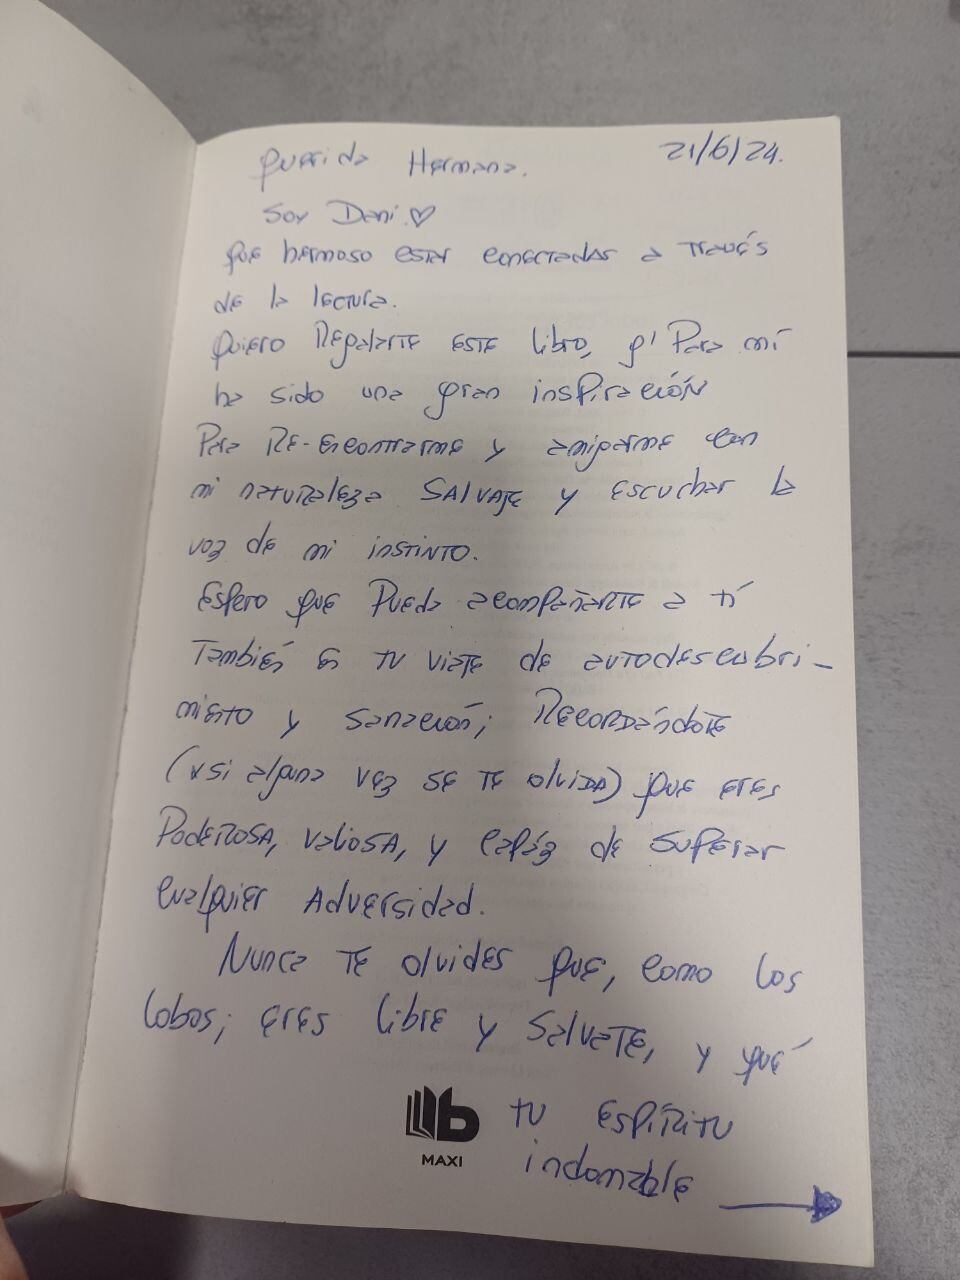 Querida Hermana. 21/6/24.
Soy Dani.♡
que hermoso estar conectadas a través
de la lectura.
Quiero Regalarte este libro, q' Para mí
ha sido una gran inspiración
Para Re-encontrarme y amigarme con
mi naturaleza SALVAJE y escuchar la
voz de mi instinto.
Espero que Pueda acompañarte a tí
También en tu viaje de autodescubri-
miento y sanación; Recordándote
(x si alguna vez se te olvida) que eres
PODEROSA, valiosa, y capáz de superar
cualquier Adversidad.
Nunca te olvides que, como los
lobos; eres libre y salvaje, y qué
tu espíritu
indomable →
b
MAXI